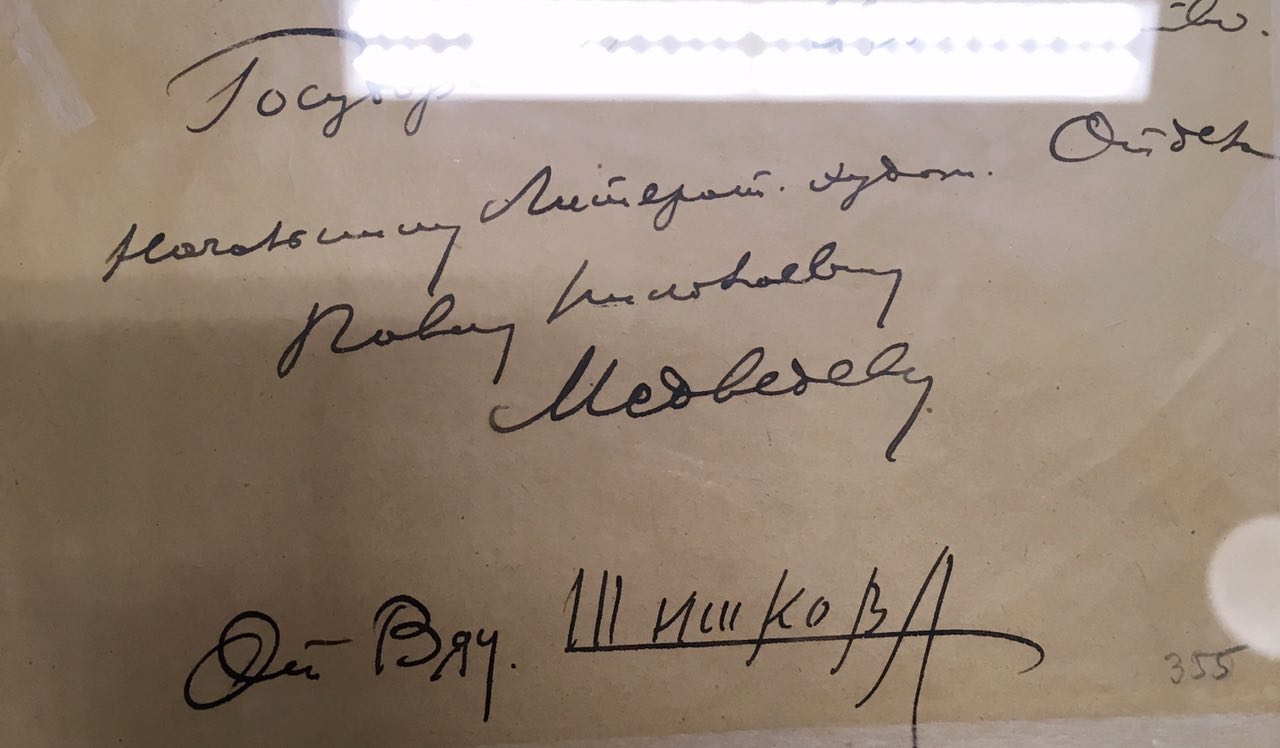 Государ
Начальнику Литерат. худож. Отдел
Павлу Николаевичу
Медведеву
От Вяч. Шишкова
355